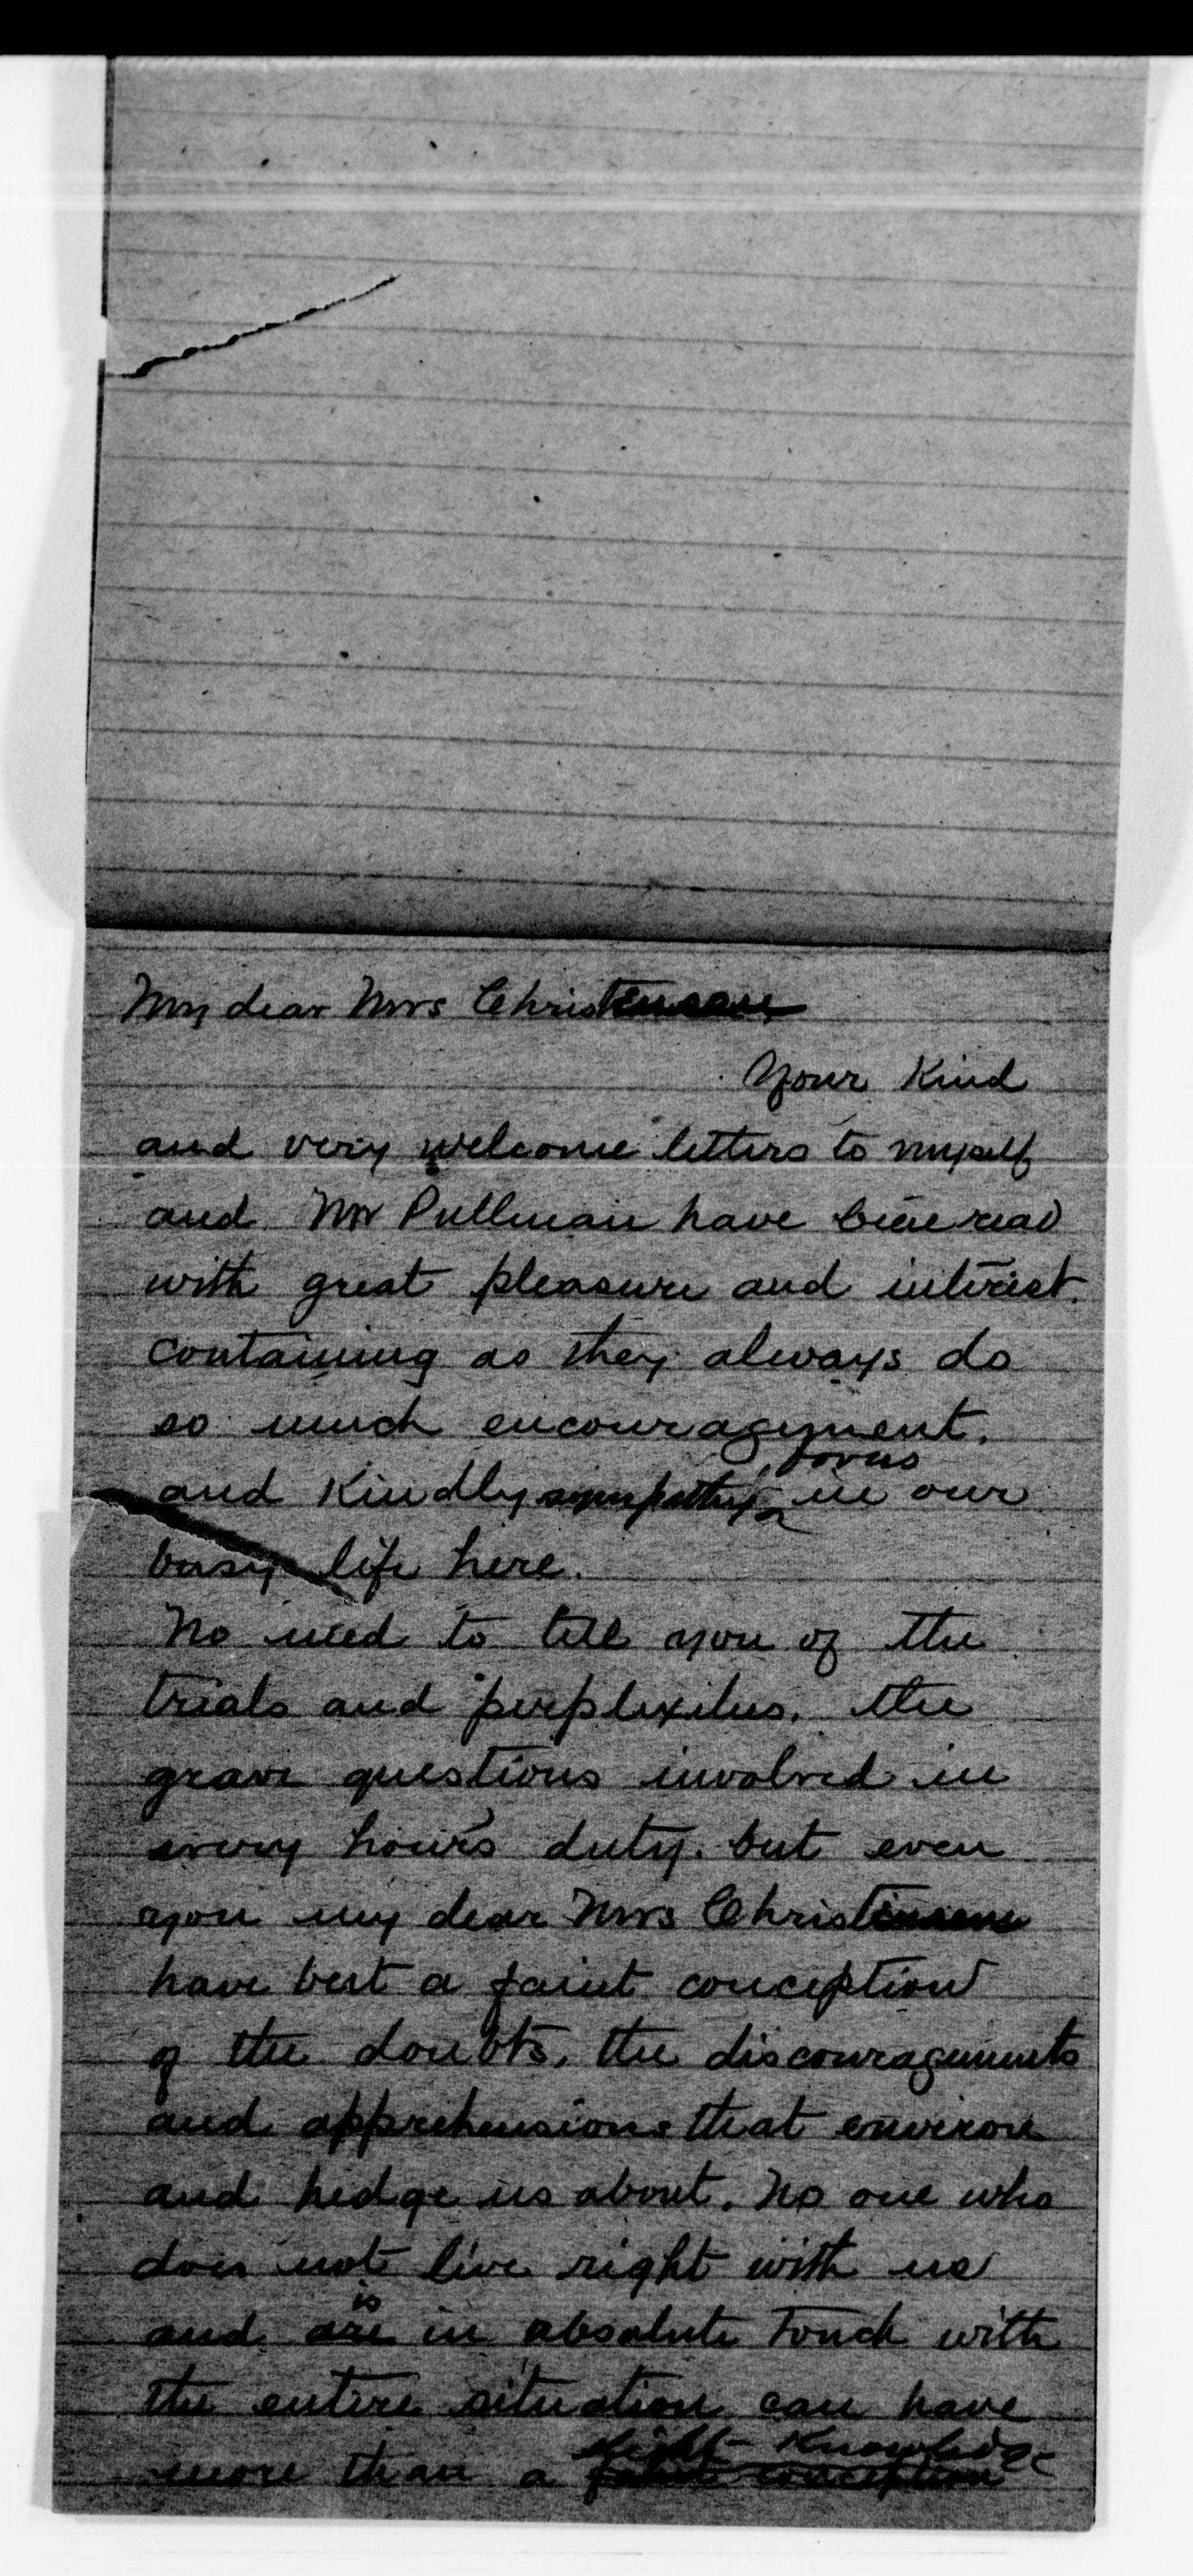 My dear Mrs Christensen
Your Kind
and very welcome letters to myself
and Mr Pullman have been read
with great pleasure and interest.
containing as they always do
so much encouragement.
and Kindly sympathy in our
busy life here.
No need to tell you of the
trials and perplexities. the
grave questions involved in
every hour's duty. but even
you my dear Mrs Christensen
have but a faint conception
of the doubts, the discouragements
and apprehensions that environ
and hedge us about. No one who
does not live right with us
is
and are in absolute touch with
the entire situation can have
slight Knowledge
more than a faint conception